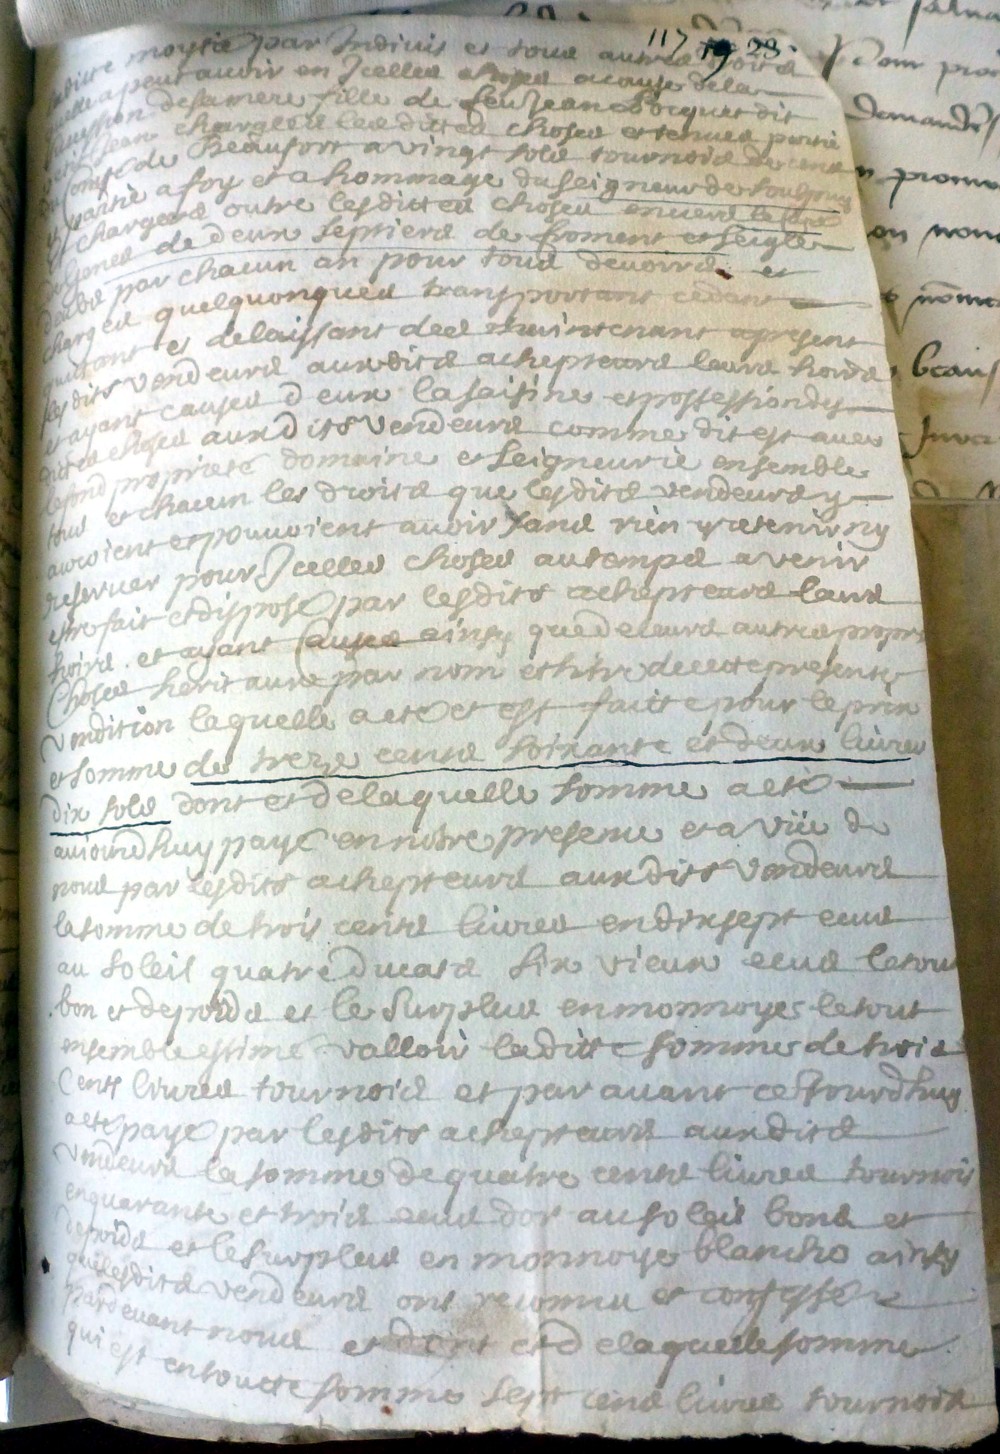 117 19 23
laditte moytié par Indivis et tous autres droits
peut avoir en Jcelles choses a cause de la
de sa mere fille de feu Jean Bocquet dit
Jean chargées lesdittes choses et tenues partie
du Conté de Beaufort a vingt sols tournois de cens
et partie a foy et a hommage du seigneur de
et chargées outre lesdittes choses envers
de deux septiers de froment et seigle
par chacun an pour tous devoirs et
charges quelquonques transportant cedant
quitant et delaissant dees maintenant apresent
lesdits vendeurs auxdits achepteurs leurs hoirs
et ayant causes d eux la saisine et possession des
dittes choses auxdits vendeurs comme dit est avec
le fond proprieté domaine et seigneurie ensemble
tous et chacun les droits que lesdits vendeurs y
avoient et pouvoient avoir sans rien y retenir ny
reserver pour Jcelles choses au temps avenir
estre fait et disposé par lesdits achepteurs leurs
hoirs et ayant cause ainsy que de leurs autres propres
Choses heritaux par nom et titre de cette presente
vendition laquelle a eté et est faitte pour le prix
et somme de treze cents soixante et deux livres
dix sols dont et de laquelle somme a eté
aujourdhuy payé en notre presence et a vüe de
nous par lesdits achepteurs auxdits vendeurs
la somme de trois cents livres en dixsept ecus
au soleil quatre Ducats six vieux ecus le tout
bon et de poids et le surplus en monnoyes le tout
ensemble estimé valloir laditte somme de trois
Cents livres tournois et par avant ce Jourdhuy
a eté payé par lesdits achepteurs auxdits
vendeurs la somme de quatre cents livres tournois
en quarante et trois ecus d'or au soleil bons et
de poids et le surplus en monnoye blanche ainsy
que lesdits vendeurs ont reconnu et confessé
pardevant nous et dont et de laquelle somme
qui est en toutte somme sept cens livres tournois